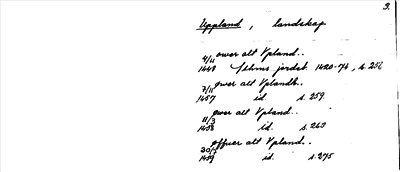 3.
Uppland, landskap
4/11 ower alt Vpland..
1448 Sthms jordab. 1420-74, s. 256
7/11 ower alt Vplandh..
1457 id. s. 259.
11/3 ower alt Vpland..
1458 id. s. 263
30/7 offuer alt Vpland..
1459 id. s. 275